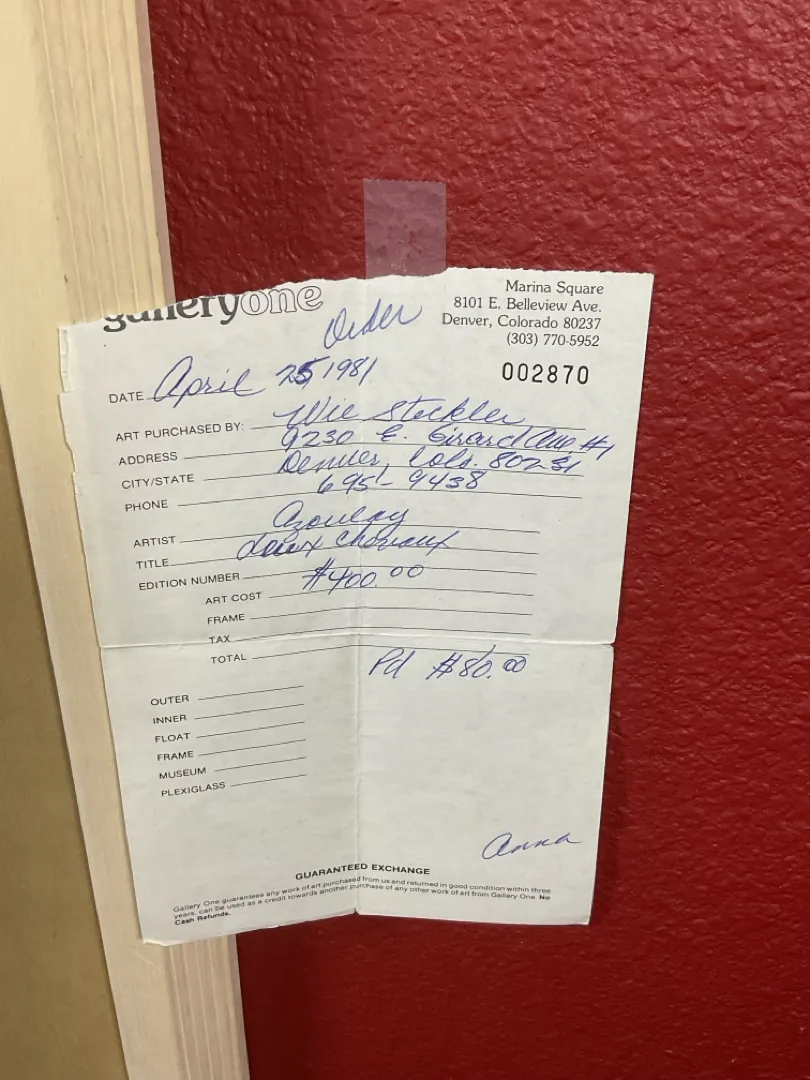 galleryone
Order
Marina Square
8101 E. Belleview Ave.
Denver, Colorado 80237
(303) 770-5952
002870
DATE April 25, 1981
ART PURCHASED BY: Steckler
ADDRESS 9230 E. Girard Ave #1
CITY/STATE Denver, Colo. 80231
PHONE 695-9438
ARTIST Azoulay
TITLE
EDITION NUMBER
ART COST $400.00
FRAME
TAX
TOTAL
Pd $80.00
OUTER
INNER
FLOAT
FRAME
MUSEUM
PLEXIGLASS
Anna
GUARANTEED EXCHANGE
Gallery One guarantees any work of art purchased from us and returned in good condition within three
years, can be used as a credit towards another purchase of any other work of art from Gallery One. No
Cash Refunds.